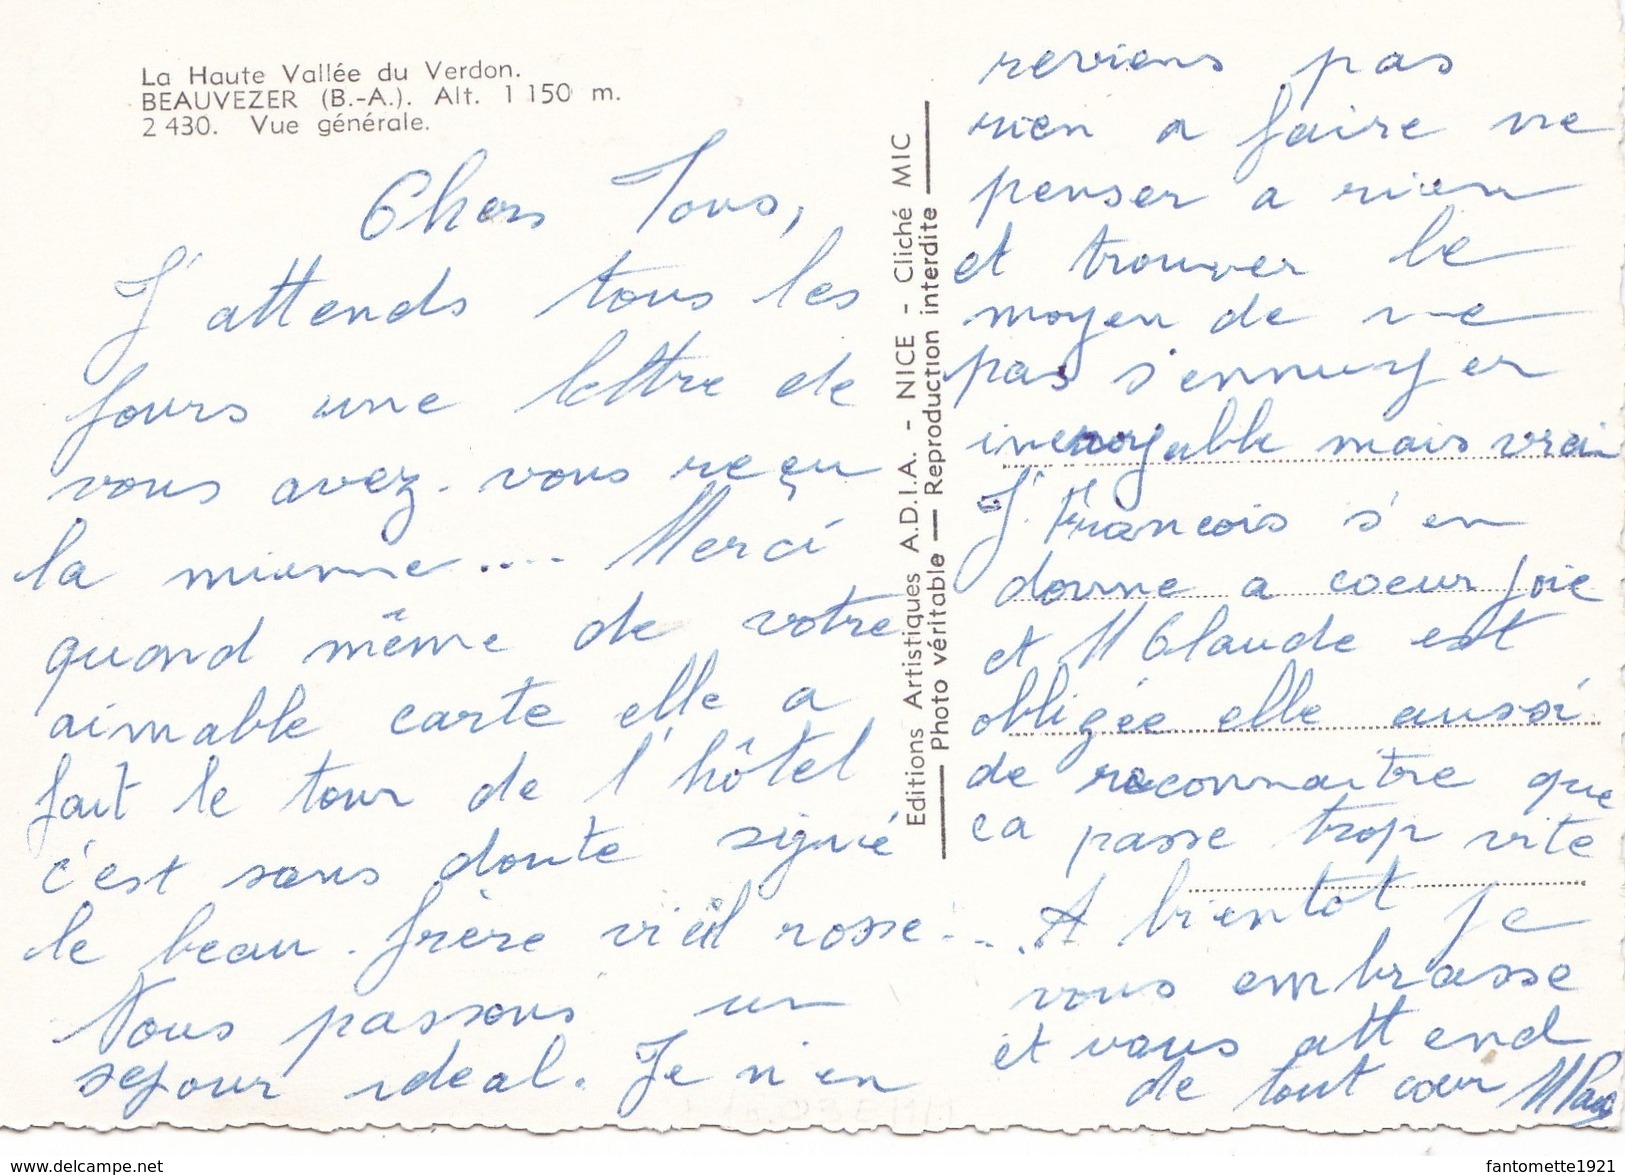 La Haute Vallée du Verdon.
BEAUVEZER (B.-A.). Alt. 1 150 m.
2 430. Vue générale.
Chers Tous,
J'attends tous les
jours une lettre de
vous avez-vous reçu
la mienne.... Merci
quand même de votre
aimable carte elle a
fait le tour de l'hôtel
c'est sans doute signé
le beau-frère vieil rosse....
Nous passons un
sejour ideal. Je n'en
Editions Artistiques A.D.I.A. - NICE - Cliché MIC
Photo véritable — Reproduction interdite
reviens pas
rien a faire ne
penser a rien
et trouver le
moyen de ne
pas s'ennuyer
incroyable mais vrai
J. Francois s'en
donne a coeur joie
et M Claude est
obligée elle aussi
de reconnaitre que
ca passe trop vite
A bientot je
vous embrasse
et vous attend
de tout cœur M Pau
www.delcampe.net
fantomette1921